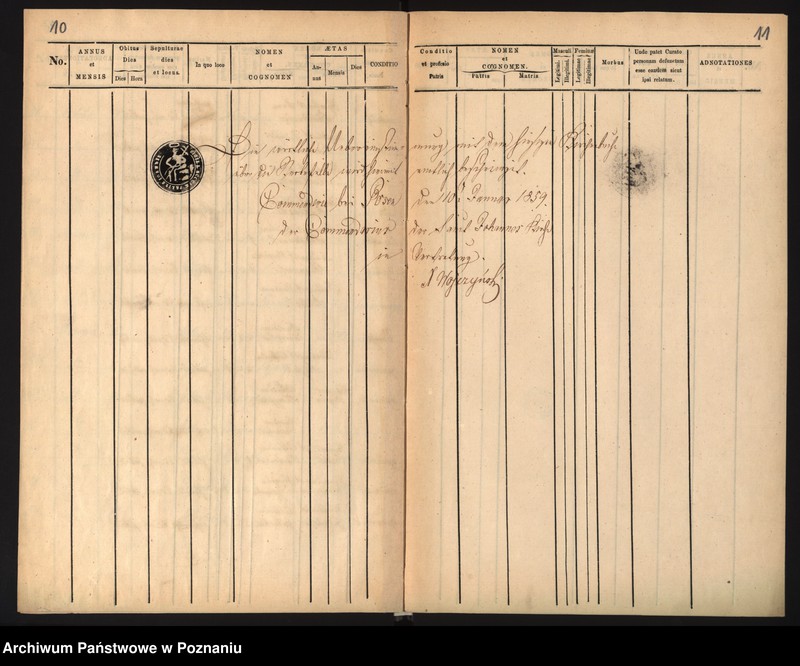 10
11
No.
ANNUS
et
MENSIS
Obitus
Dies
Dies
Hora
Sepulturae
dies
et locus.
In quo loco
NOMEN
et
COGNOMEN
ÆTAS
An-
nus
Mensis
Dies
CONDITIO
Conditio
et profesio
Patris
NOMEN
et
COGNOMEN.
Patris
Matris
Masculi
Legitimi.
Illegitimi.
Feminae
Legitimae
Illegitimae
Morbus
Unde patet Curato
personam defunctam
esse eandem sicut
ipsi relatum.
ADNOTATIONES
Die wörtliche Uebereinstimmung mit dem hiesigen Kirchenbuch
über die Sterbefälle wird hiermit amtlich bescheinigt.
Commenderie bei Posen den 10 Januar 1859.
der Commendarius der Sanct Johannes Kirche
in Vertretung.
Archiwum Państwowe w Poznaniu